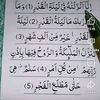 إِنَّا أَنْزَلْنَاهُ فِي لَيْلَةِ الْقَدْرِ (1) وَمَا
أَدْرَاكَ مَا لَيْلَةُ الْقَدْرِ (2) لَيْلَةُ
الْقَدْرِ خَيْرٌ مِنْ أَلْفِ شَهْرٍ (3)
تَنَزَّلُ الْمَلَائِكَةُ وَالرُّوحُ فِيهَا بِإِذْنِ
رَبِّهِمْ مِنْ كُلِّ أَمْرٍ (4) سَلَامٌ هِيَ
حَتَّى مَطْلَعِ الْفَجْرِ (5)